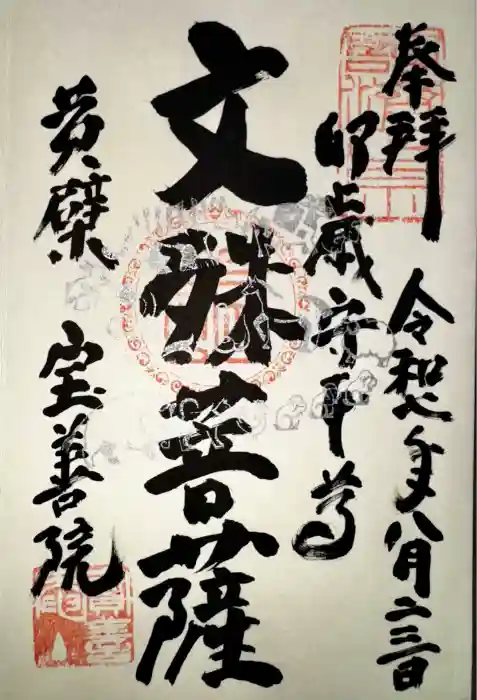 奉拝 令和七年八月二三日
卯之歳守本尊
文殊菩薩
黄檗 宝善院